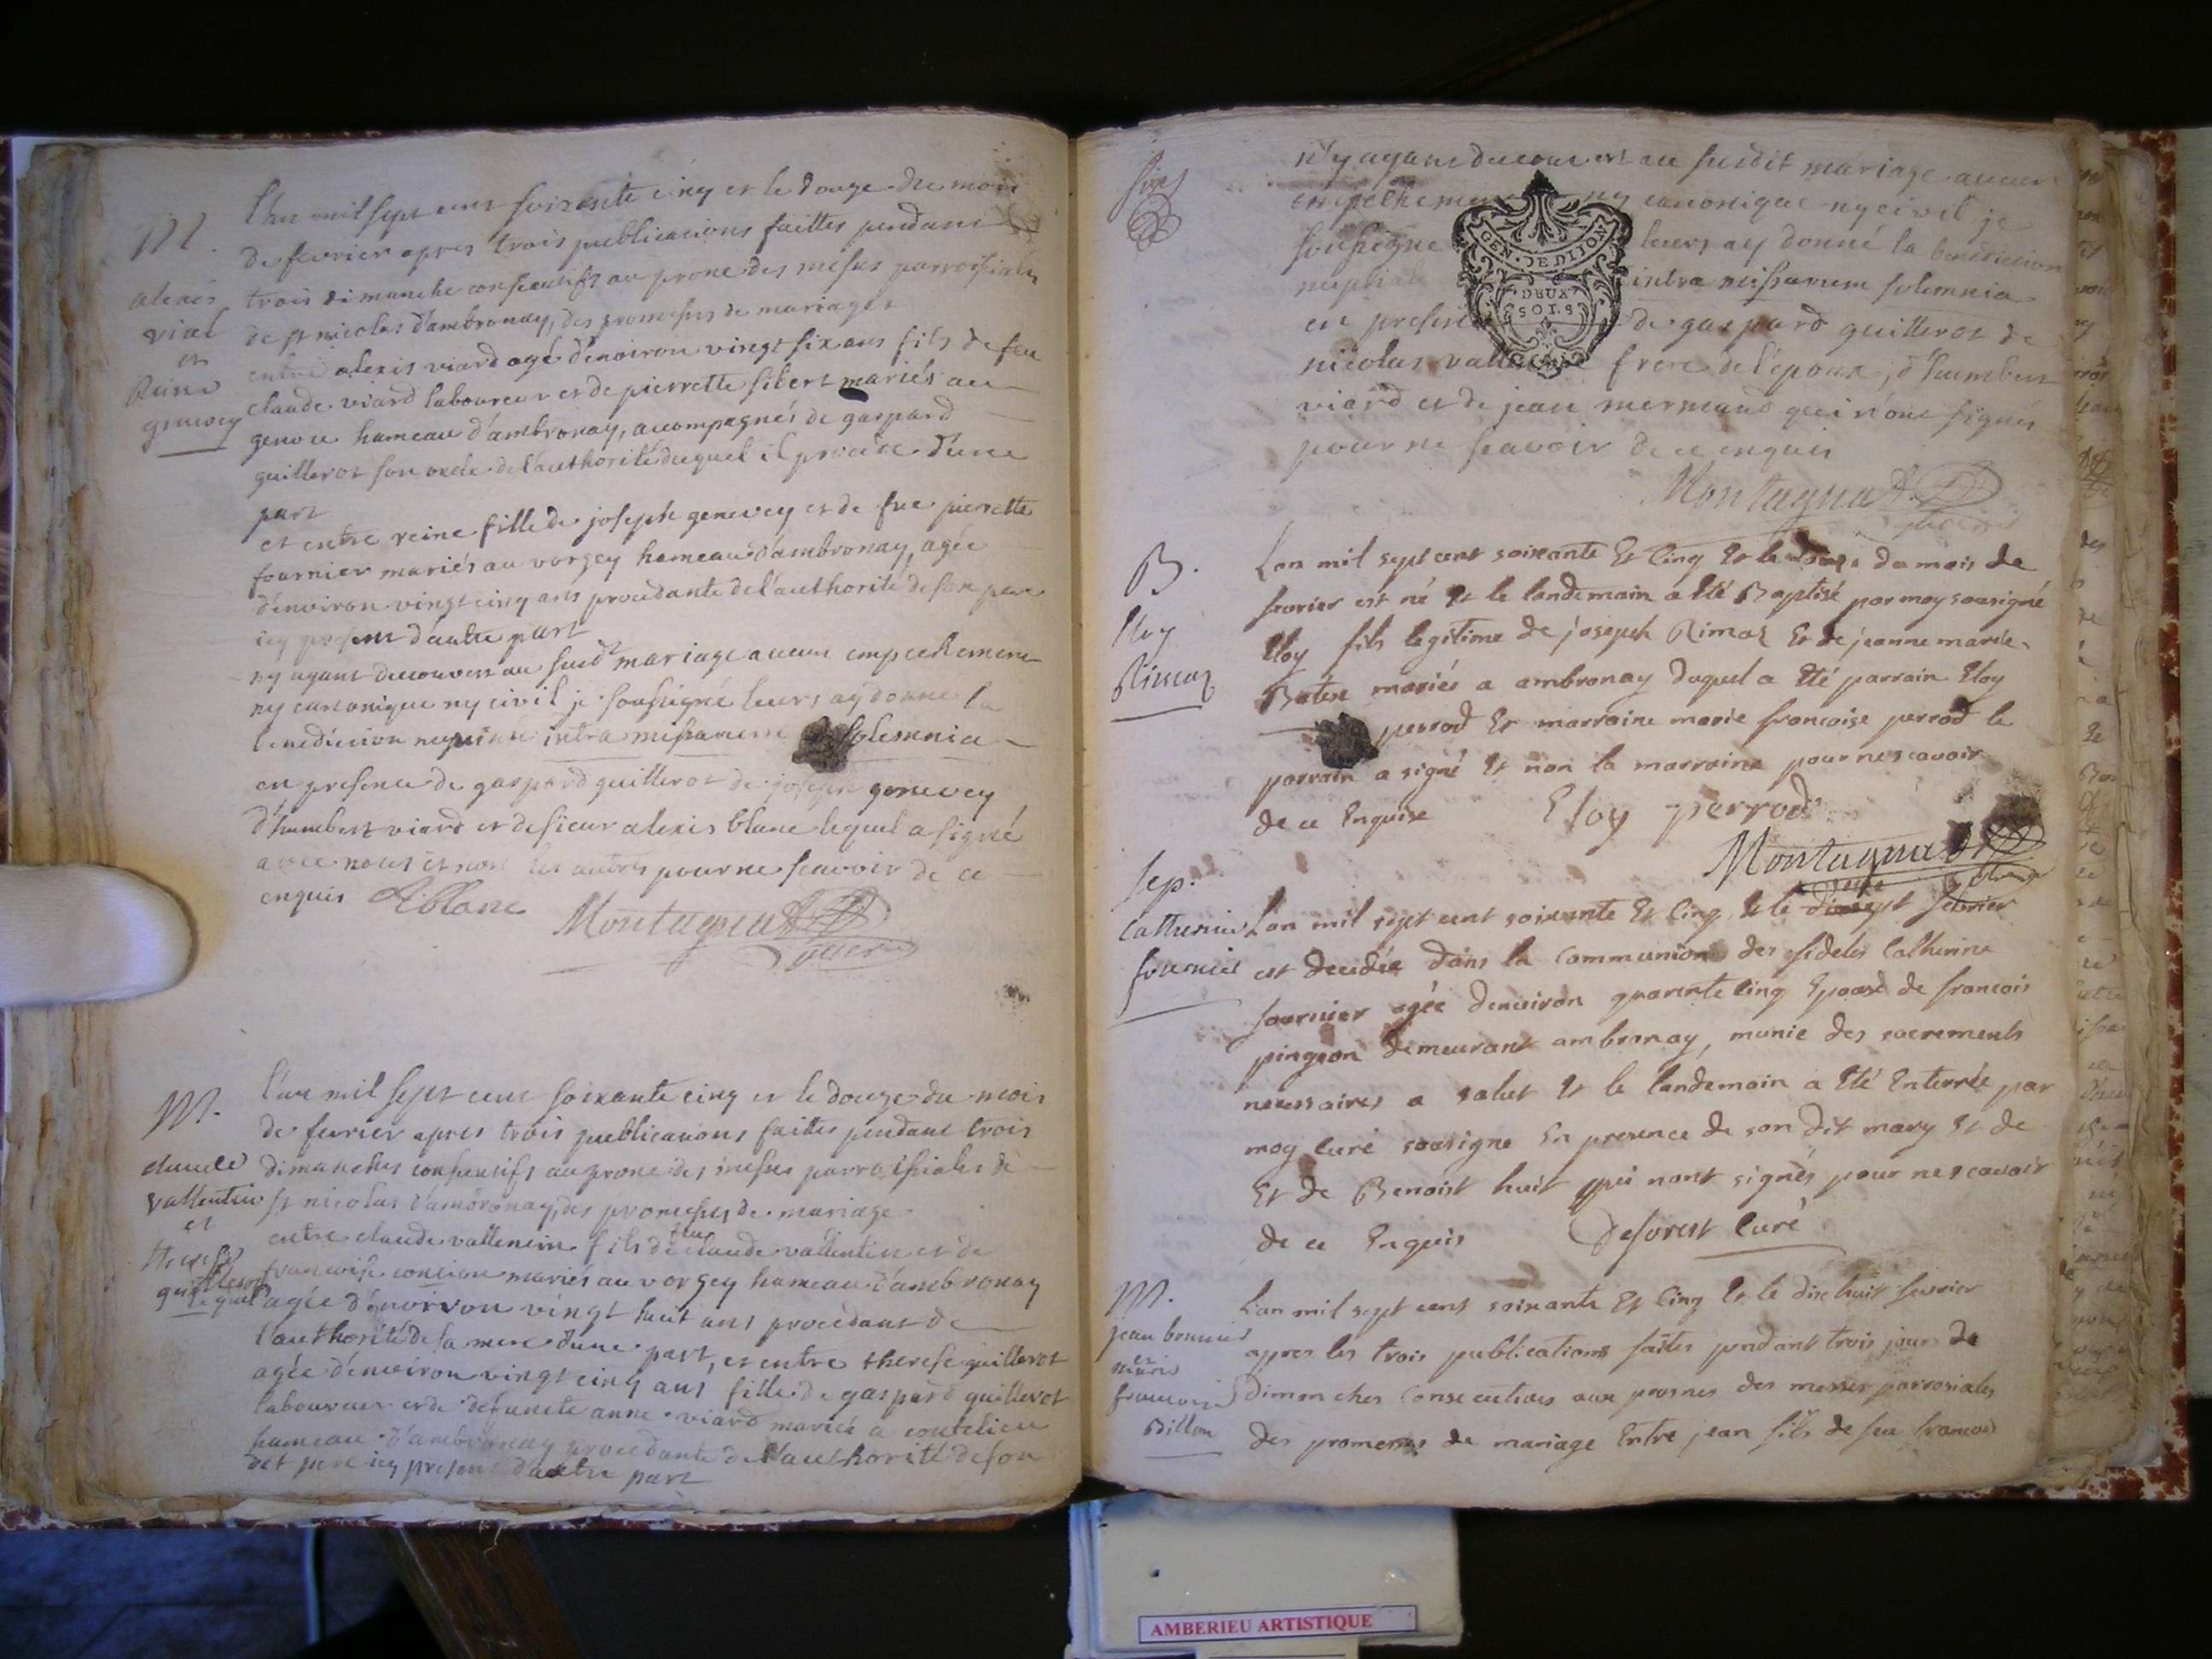 M.
alexis
vial
et
Reine
genevey
L'an mil sept cent soixante cinq et le douze du mois
de fevrier apres trois publications faittes pendant
trois dimanche consecutifs au prone des messes parroissiales
de st nicolas d'ambronay, des promesses de mariages
entre alexis viard agé d'enoiron vingt six ans fils de feu
claude viard laboureur et de pierrette sibert mariés au
genou hameau d'ambronay, acompagnés de gaspard
guillerot son oncle de l'authorité duquel il procede d'une
part
et entre reine fille de joseph genevey et de fue pierrette
fournier mariés au vorgey hameau d'ambronay, agée
d'environ vingt cinq ans procedante de l'authorité de son pere
icy present d'autre part
ny ayant decouvert au susdt mariage aucun empechement
ny canonique ny civil je soussigné leurs ay donné la
benediction nuptiale intra missarum solemnia
en presence de gaspard guillerot de joseph genevey
d'humbert viard et de sieur alexis blanc lequel a signé
avec nous et non les autres pour ne scavoir de ce
enquis ABlanc
Montagnat
vicaire
M.
claude
vallentin
et
therese
guillerot
L'an mil sept cent soixante cinq et le douze du mois
de fevrier apres trois publications faittes pendant trois
dimanches consecutifs au prone des messes parroissiales de
st nicolas d'ambronay, des promesses de mariage
entre claude vallentin fils de feu claude vallentin et de
francoise mariés au vorgey hameau d'ambronay
agée d'enoiron vingt huit ans procedant de
l'authorité de sa mere d'une part, et entre therese guillerot
agée d'environ vingt cinq ans fille de gaspard guillerot
laboureur et de defuncte anne viard mariés a coutelieu
hameau d'ambronay procedante de l'authorité de son
det pere icy present d'autre part
n'y ayant decouvert au susdit mariage aucun
empechement ny canonique ny civil je
soussigné leurs ay donné la benediction
nuptiale intra missarum solemnia
en presence de gaspard guillerot de
nicolas vallentin frere de l'epoux, d'humbert
viard et de jean mermand qui n'ont signés
pour ne scavoir de ce enquis
GEN. DE DIJON
DEUX
SOLS
Montagnat
vicaire
B.
Eloy
Rimoz
Lan mil sept cent soixante Et Cinq Et le douze du mois de
fevrier est né Et le landemain a Eté Baptisé par moy sousigné
Eloy fils legitime de joseph Rimoz Et de jeanne marie
mariés a ambronay duquel a Eté parrain Eloy
perrod Et marraine marie francoise perrod le
parrain a signé Et non la marraine pour ne scavoir
de ce Enquise Eloy perrod
Montagnat
vicaire
Sep.
Catherine
fournier
Lan mil sept cent soixante Et Cinq Et le dixsept fevrier
est decedée dans la Communion des fideles Catherine
fournier agée denviron quarente Cinq Epouse de francois
pingeon demeurant ambronay, munie des sacrements
necessaires a salut Et le landemain a Eté Enterrée par
moy Curé sousigne En presence de son dit mary Et de
Et de Benoist huit qui nont signés pour ne scavoir
de ce Enquis Deforest Curé
M.
jean bonnier
et
marie
francoise
Billon
Lan mil sept cent soixante Et Cinq Et le dix huit fevrier
apres les trois publications faites pendant trois jours de
Dimanches Consecutives aux prosnes des messes parrosiales
des promesses de mariage Entre jean fils de feu francois
AMBERIEU ARTISTIQUE